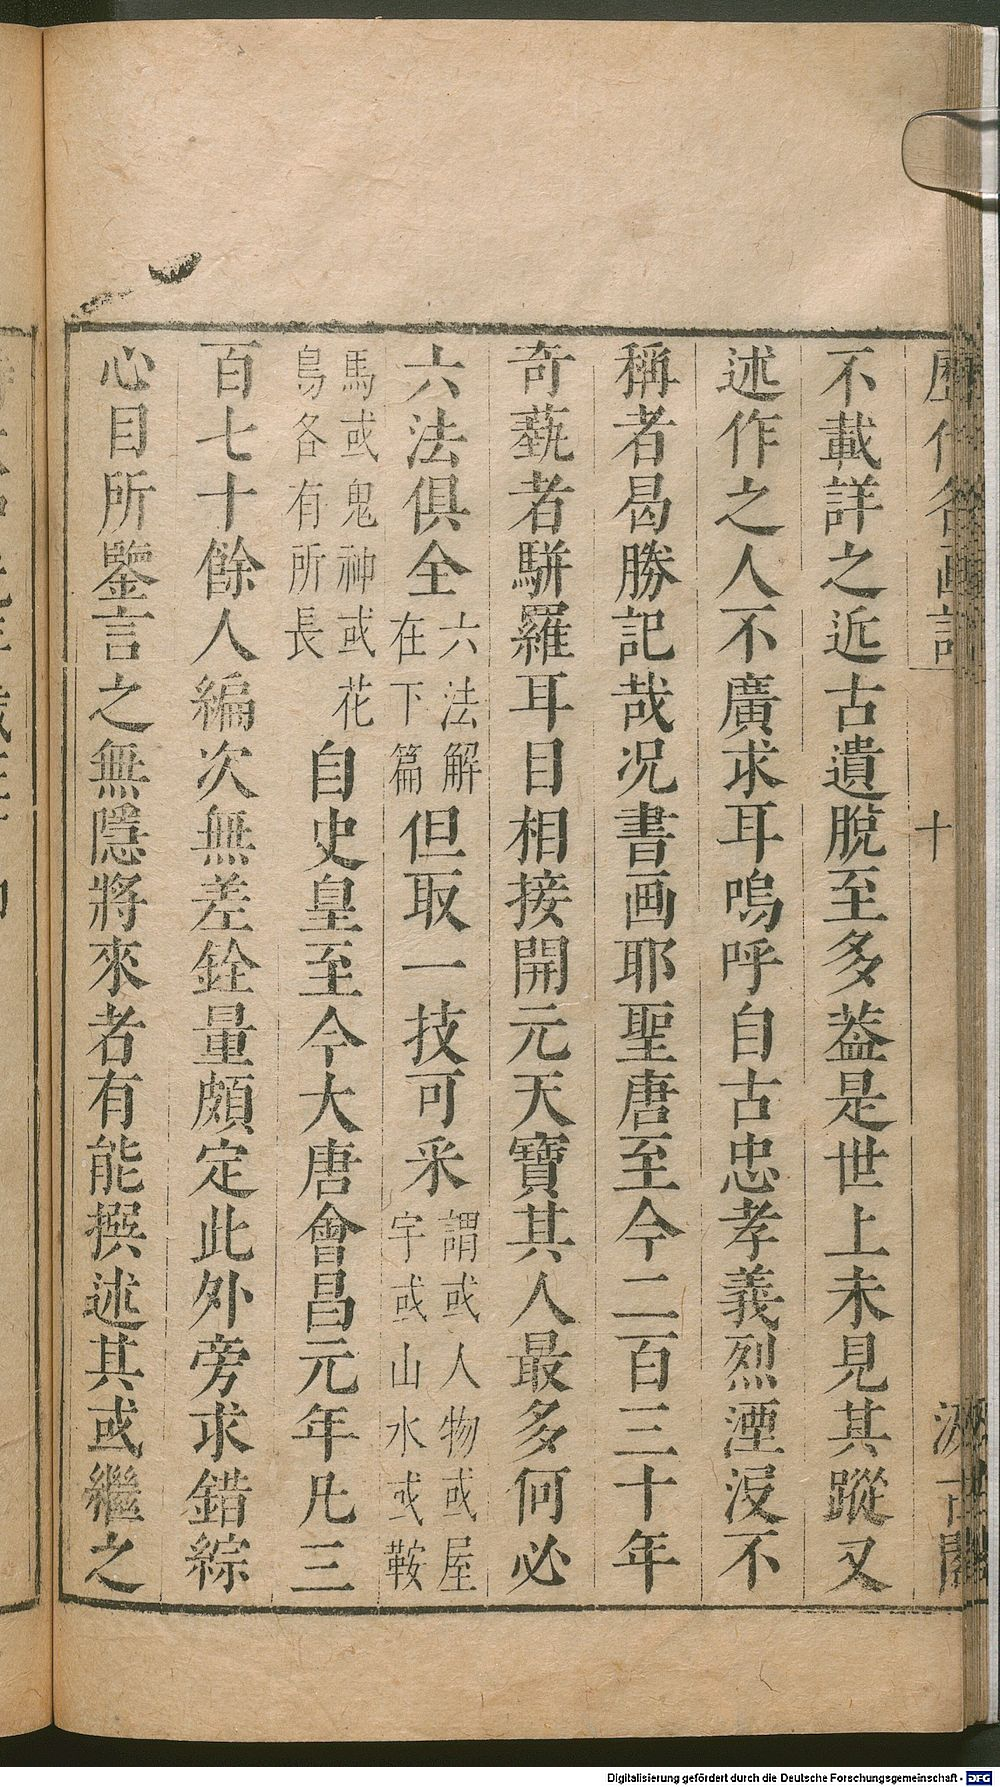 歷代名画記
十
汲古閣
不載詳之近古遺脫至多蓋是世上未見其蹤又
述作之人不廣求耳嗚呼自古忠孝義烈湮沒不
稱者曷勝記哉况書画耶聖唐至今二百三十年
奇蓺者駢羅耳目相接開元天寶其人最多何必
六法俱全六法解在下篇但取一技可采謂或人物或屋宇或山水或鞍
馬或鬼神或花鳥各有所長自史皇至今大唐會昌元年凡三
百七十餘人編次無差銓量頗定此外旁求錯綜
心目所鑒言之無隱將來者有能撰述其或繼之
Digitalisierung gefördert durch die Deutsche Forschungsgemeinschaft - DFG